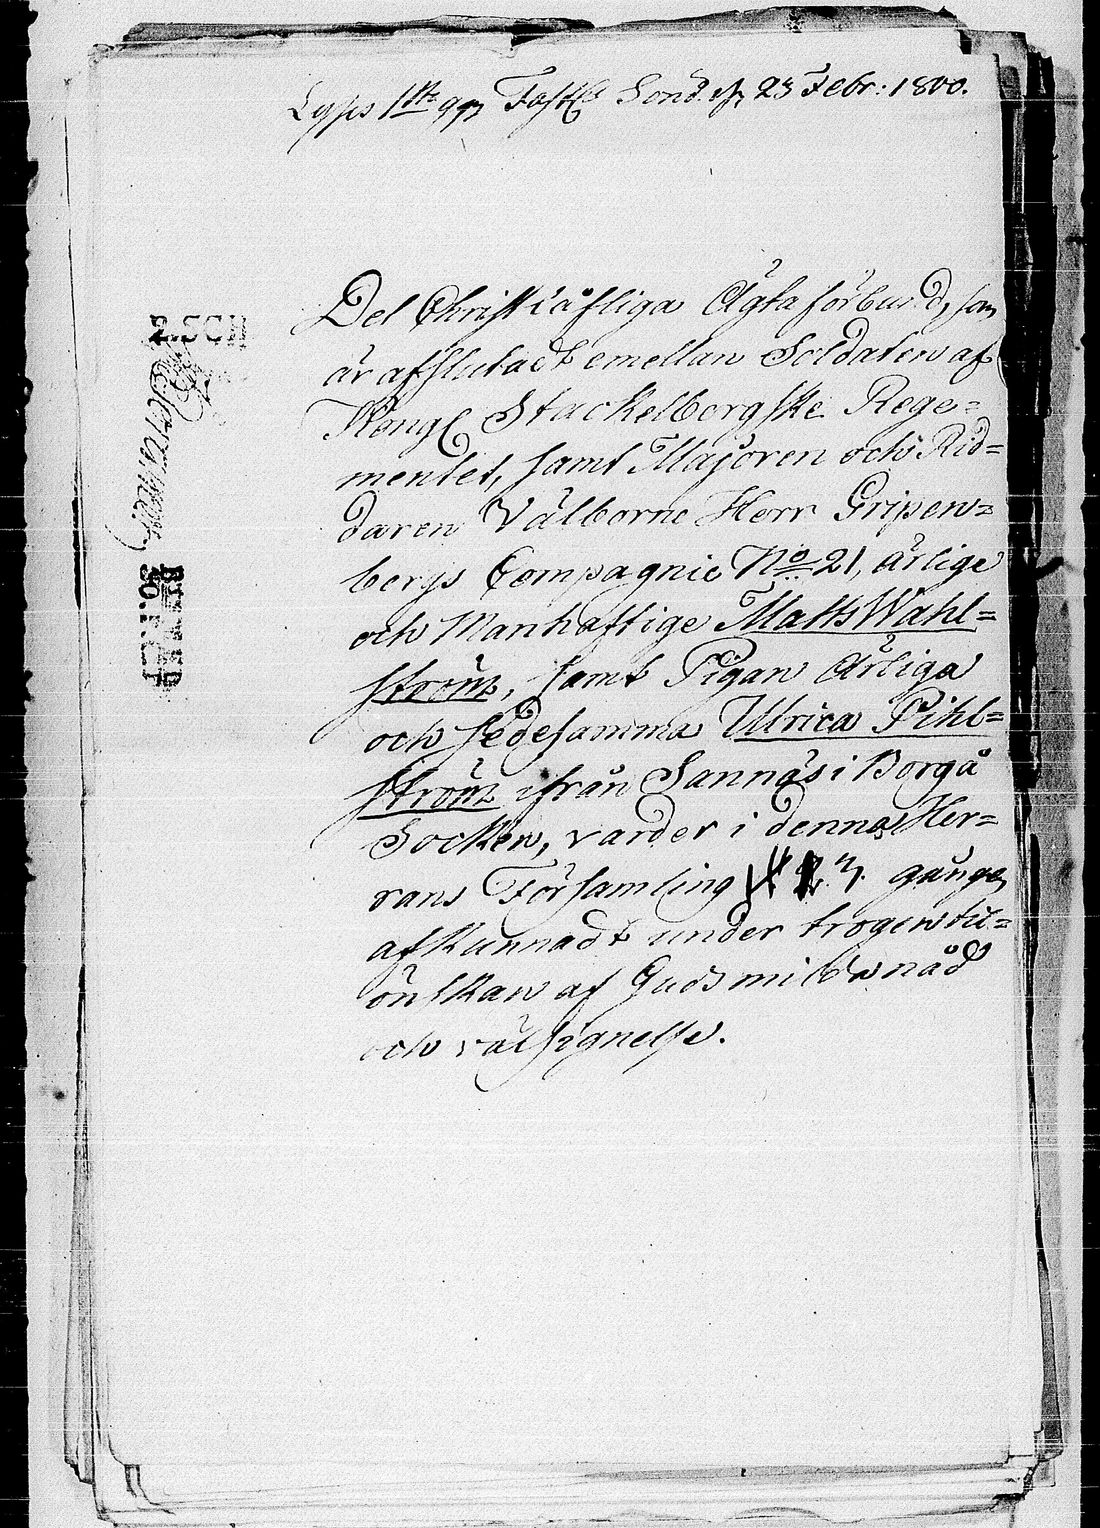 Lyses 1ste ggn Fastl. Sond. d. 23 Febr: 1800.
Det Christkiäfliga Ägtaförbund, som
är afslutadt emellan Soldaten af
Kongl Stackelbergske Rege=
mentet, samt Majoren och Rid=
daren Välborne Herr Gripen=
bergs Compagnie No 21, ärlige
och Manhaftige Matts Wahl=
ström, samt Pigan Ärliga
och sedesamma Ulrica Pihl=
ström ifrån Sannäs i Borgå
Socken, varder i denna Her=
rans Församling 3. gången
afkunnadt under trogen till=
önskan af Guds milda nåd
och välsignelse.
2.SCH